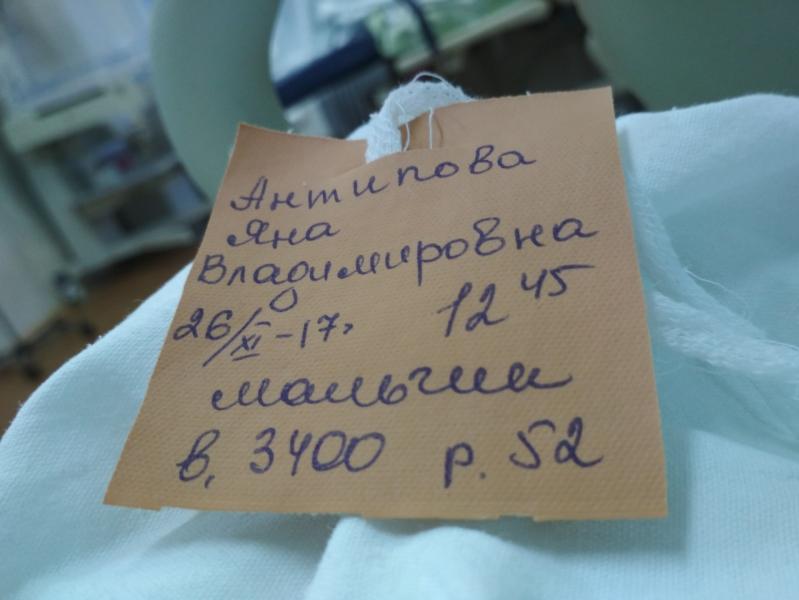 Антипова
Яна
Владимировна
26/XI-17г 12 45
мальчик
в. 3400 р. 52